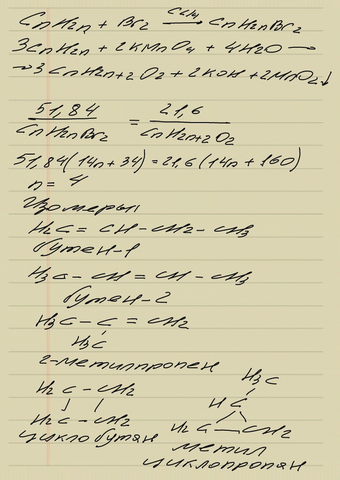 CnH2n + Br2 →(CCl4) CnH2nBr2
3CnH2n + 2KMnO4 + 4H2O →
→ 3CnH2n+2O2 + 2KOH + 2MnO2↓
51,84 / CnH2nBr2 = 21,6 / CnH2n+2O2
51,84(14n+34) = 21,6(14n+160)
n = 4
Изомеры
H2C = CH – CH2 – CH3
бутен-1
H3C – CH = CH – CH3
бутен-2
H3C – C = CH2
H3C
2-метилпропен
H2C – CH2
H2C – CH2
циклобутан
H3C
HC
H2C – CH2
метил
циклопропан